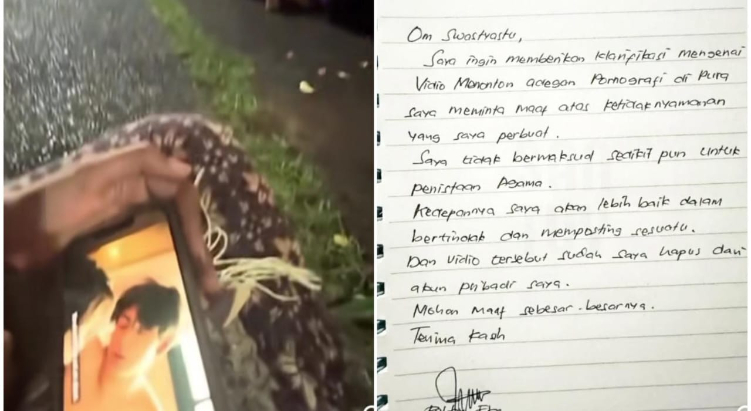 Om Swastyastu,
Saya ingin memberikan klarifikasi mengenai
Vidio Menonton adegan Pornografi di Pura
saya meminta maaf atas ketidaknyamanan
yang saya perbuat.
Saya tidak bermaksud sedikit pun untuk
penistaan Agama.
Kedepannya saya akan lebih baik dalam
bertindak dan memposting sesuatu.
Dan vidio tersebut sudah saya hapus dari
akun pribadi saya.
Mohon maaf sebesar-besarnya.
Terima kasih